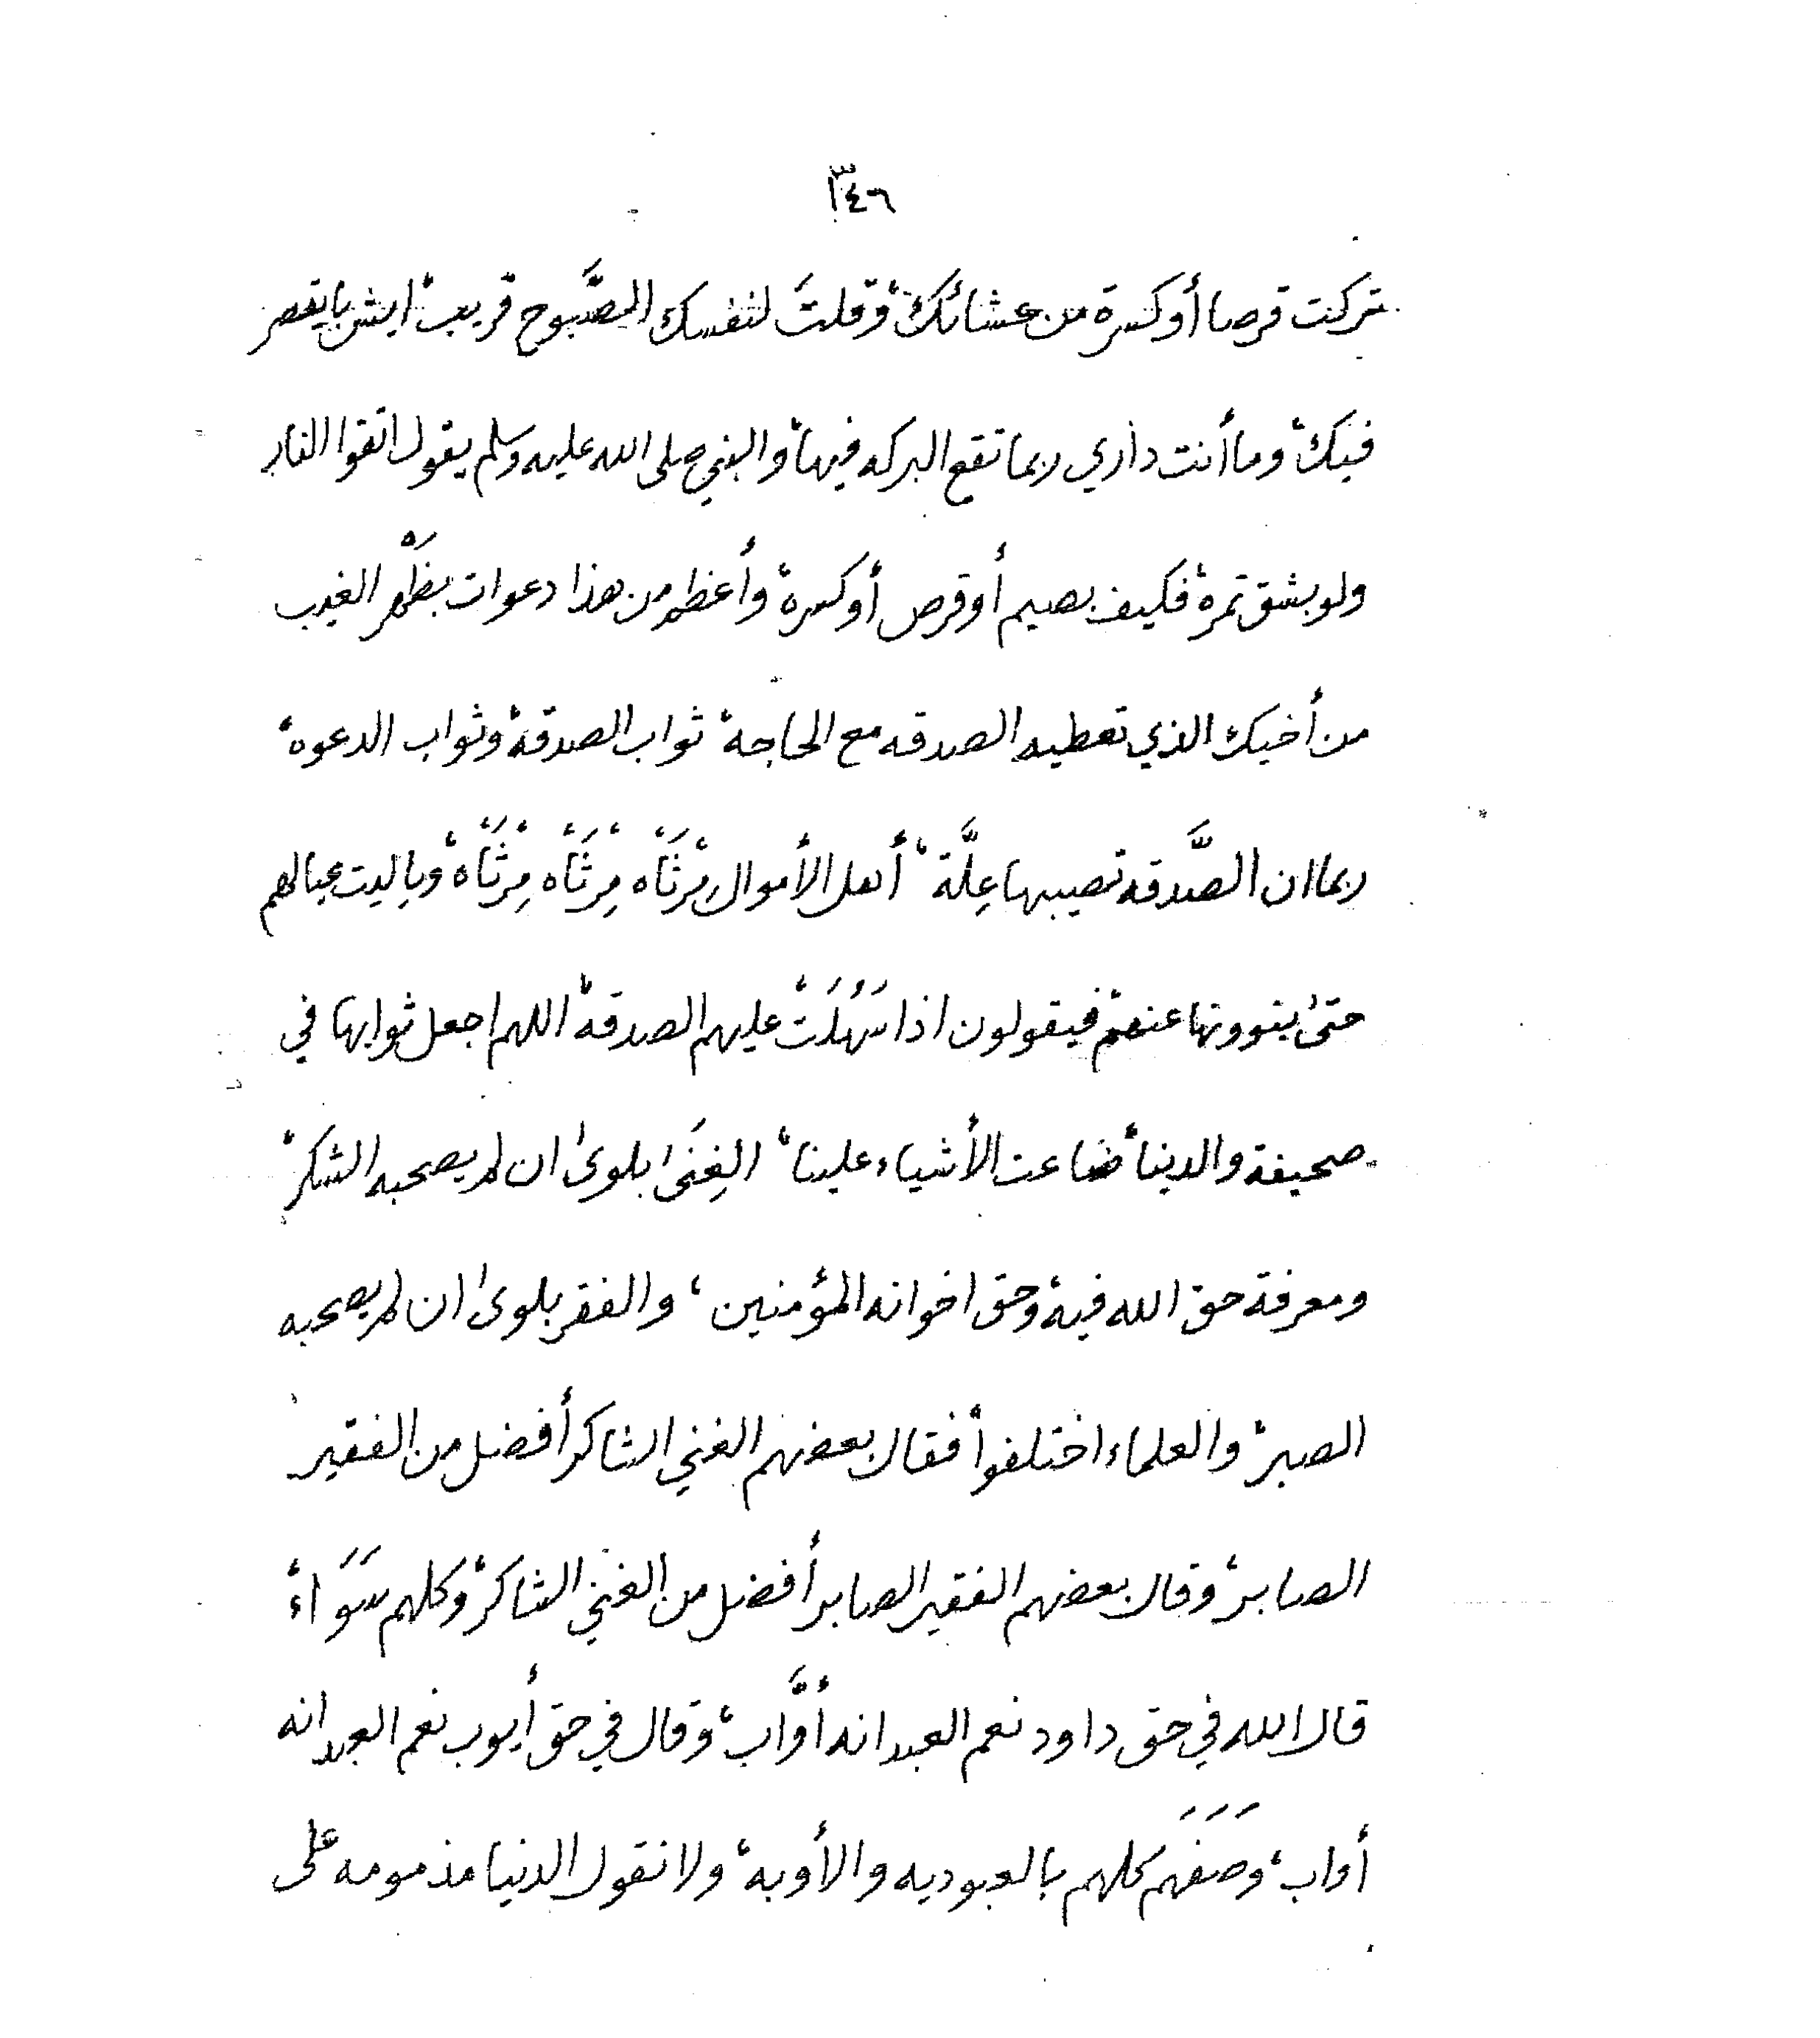 ٣٤٦
تركت قرصا أو كسرة من عشائك، وقلتَ لنفسك الصَّبوح قريب، ايش بايقصر
فيك، وما أنت داري ربما تقع البركه فيها، والنبي صلى الله عليه وسلم يقول اتقوا النار
ولو بشق تمرة، فكيف بصيم أو قرص أو كسرة، وأعظم من هذا دعوات بظَهْر الغيب
من أخيك الذي تعطيه الصدقه مع الحاجة، ثواب الصدقة، وثواب الدعوه،
ربما ان الصَّدقه تصيبها عِلَّة، أهل الأموال مِرْثَاه، مِرْثَاه، مِرْثَاه، وبِاليت عيالهم
حتى ينوونها عنهم، فيقولون اذا سَهُلَتْ عليهم الصدقة، اللهم اجعل ثوابها في
صحيفة والدينا، ضاعت الأشياء علينا، الغِنَى بلوىٰ ان لم يصحبه الشكر،
ومعرفة حق الله فيه، وحق اخوانه المؤمنين، والفقر بلوىٰ ان لم يصحبه
الصبر، والعلماء اختلفوا، فقال بعضهم الغني الشاكر أفضل من الفقير
الصابر، وقال بعضهم الفقير الصابر أفضل من الغني الشاكر، وكلهم سَوَاء،
قال الله في حق داود نعم العبد انه أوَّاب، وقال في حق أيوب نعم العبد انه
أواب، وَصَفَهم كلهم بالعبوديه والأوبه، ولا نقول الدنيا مذمومه على